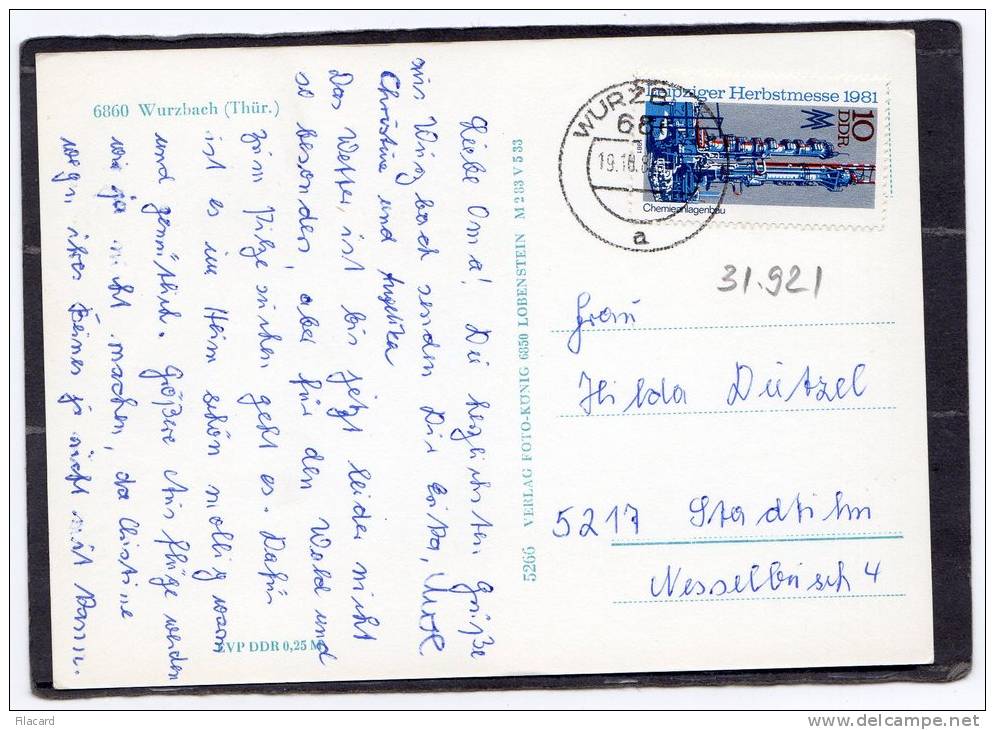 6860 Wurzbach (Thür.)
Liebe Oma! Die herzlichsten Grüße
aus Wurzbach senden Dir
Christine und Angelika
Das Wetter ist bis jetzt leider nicht
so besonders, aber für den Wald und
zum Pilze suchen geht es. Dafür
ist es im Heim schön mollig warm
und gemütlich. Größere Ausflüge werden
wir ja nicht machen, da Christine
wegen ihres Beines ja nicht mit kann.
EVP DDR 0,25 M
5266 VERLAG FOTO-KÖNIG 6850 LOBENSTEIN M 283 V 5 83
Leipziger Herbstmesse 1981
10
DDR
1981
Chemieanlagenbau
WURZB
68
19.10.8
a
31.921
Frau
Hilda Dützel
5217 Stadtilm
Nesselbusch 4
Filacard
www.delcampe.net